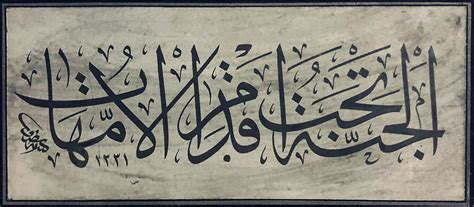 الجنّة تحت أقدام الأمّهات
١٢٣١